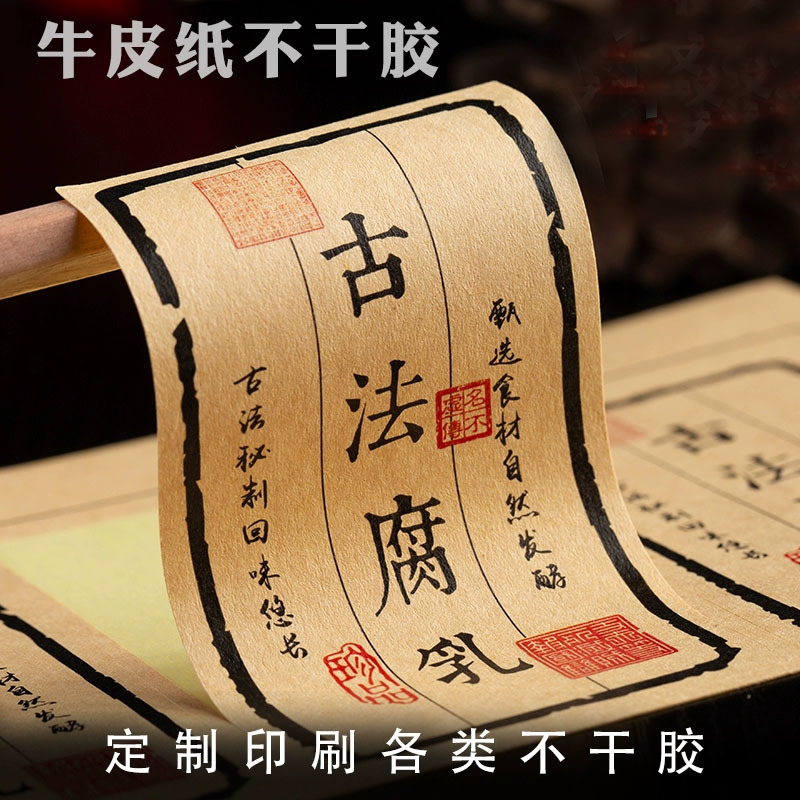 牛皮纸不干胶
甄选食材自然发酵
名不
虚傳
古法腐乳
古法秘制回味悠长
珍品
定制印刷各类不干胶